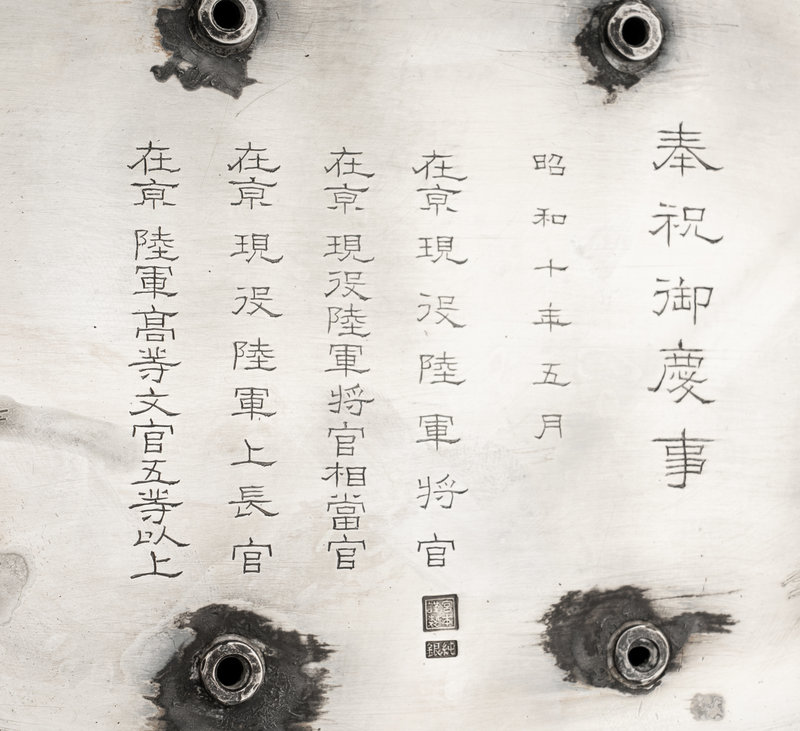 奉祝御慶事
昭和十年五月
在京現役陸軍将官
在京現役陸軍将官相當官
在京現役陸軍上長官
在京陸軍髙等文官五等以上
宮本謹製
純銀